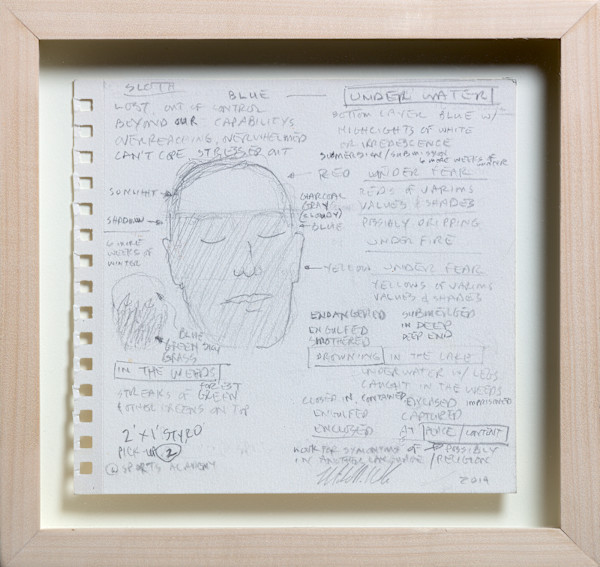 SLOTH
BLUE
LOST, OUT OF CONTROL
BEYOND OUR CAPABILITYS
OVERREACHING, OVERWHELMED
CAN'T COPE STRESSED OUT
SUNLIGHT
SHADOW
6 MORE
WEEKS OF
WINTER
BLUE
GREEN
GRASS
IN THE WEEDS
FOREST
STREAKS OF GREEN
& OTHER GREENS ON TOP
2' X 1' STYRO
PICK-UP 2
@ SPORTS ACADEMY
UNDER WATER
BOTTOM LAYER BLUE W/
HIGHLIGHTS OF WHITE
OR IRREDESCENCE
SUBMERSION/SUBMISSION
6 MORE WEEKS OF WINTER
RED UNDER FEAR
CHARCOAL
GRAY
(CLOUDY)
BLUE
REDS OF VARIOUS
VALUES & SHADES
POSSIBLY DRIPPING
UNDER FIRE
YELLOW UNDER FEAR
YELLOWS OF VARIOUS
VALUES & SHADES
ENDANGERED SUBMERGED
ENGULFED IN DEEP
SMOTHERED DEEP END
DROWNING IN THE LAKE
UNDERWATER W/ LEGS
CAUGHT IN THE WEEDS
CLOSED IN, CONTAINED ENCASED IMPRISONED
ENGULFED CAPTURED
ENCLOSED AT PEACE CONTENT
WORK FOR SYNONYMS OF POSSIBLY
IN ANOTHER LANGUAGE / RELIGION
2014